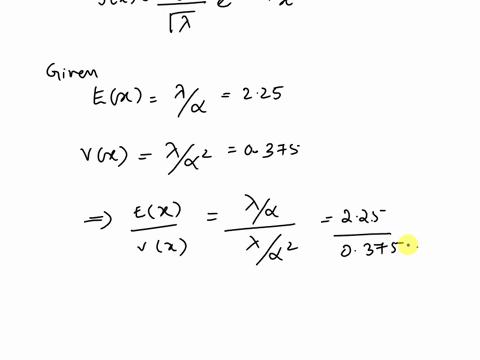 √λ e x
Given
E(x) = λ/α = 2.25
V(x) = λ/α² = 0.375
⇒ E(x)/V(x) = (λ/α)/(λ/α²) = 2.25/0.375